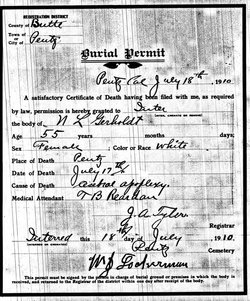 REGISTRATION DISTRICT
County of Butte
Town of
City of Pentz
Burial Permit
Pentz Cal July 18th 1910
A satisfactory Certificate of Death having been filed with me, as required
by law, permission is hereby granted to Inter
the body of N. L. Gerholdt
Age 55 years months days;
Sex Female Color or Race White
Place of Death Pentz
Date of Death July 17th
Cause of Death cerebral apoplexy.
Medical Attendant T B Reardan
J. A. Tyler
Registrar
Interred this 18th day of July 1910.
Pentz Cemetery
This permit must be signed by the person in charge of burial ground or premises in which the body is
received, and returned to the Registrar of the district within one day after receipt of the body.